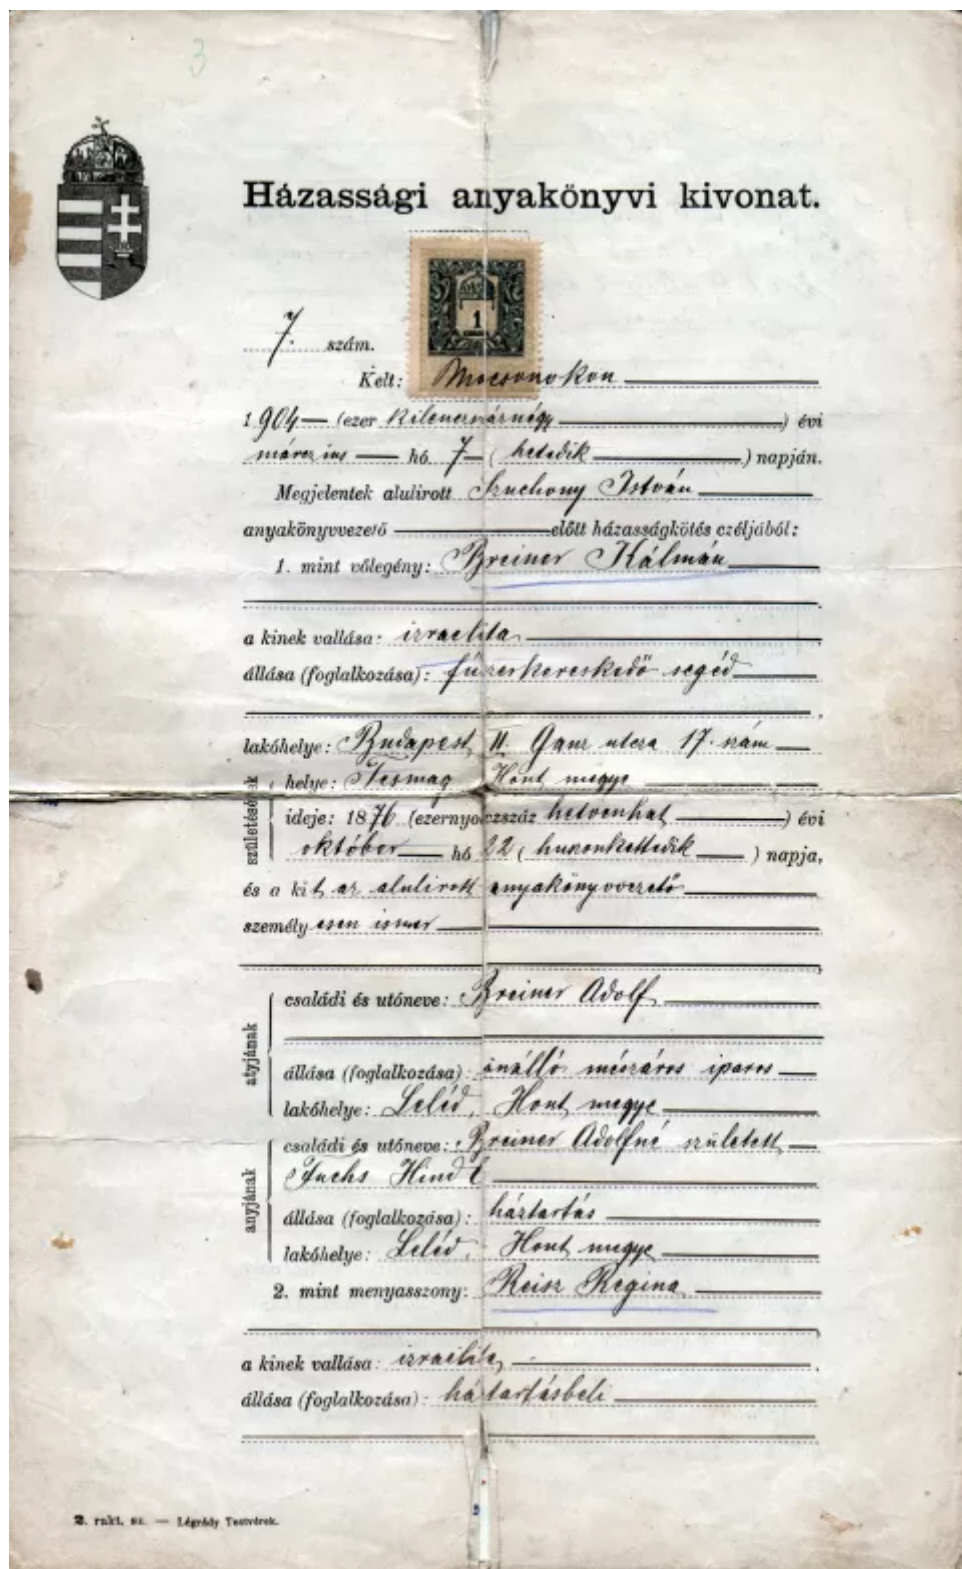 3
Házassági anyakönyvi kivonat.
1
7. szám.
Kelt: Mocsonokon
1904 — (ezer kilenczszáznégy) évi
márczius hó 7 — (hetedik) napján.
Megjelentek alulirott Szuchony István
anyakönyvvezető előtt házasságkötés czéljából:
1. mint vőlegény: Breiner Kálmán
a kinek vallása: izraelita
állása (foglalkozása): fűszerkereskedő segéd
lakóhelye: Budapest, II. Ganz utcza 17. szám
születésének
helye: Hont megye
ideje: 1876 (ezernyolczszáz hetvenhat) évi
október hó 22 (huszonkettedik) napja,
és a kit az alulirott anyakönyvvezető
személyesen ismer
atyjának
családi és utóneve: Breiner Adolf
állása (foglalkozása): önálló mészáros iparos
lakóhelye: Leléd, Hont megye
anyjának
családi és utóneve: Breiner Adolfné született
Fuchs Hindl
állása (foglalkozása): háztartás
lakóhelye: Leléd, Hont megye
2. mint menyasszony: Reisz Regina
a kinek vallása: izraelita
állása (foglalkozása): háztartásbeli
2. rakt. sz. — Légrády Testvérek.